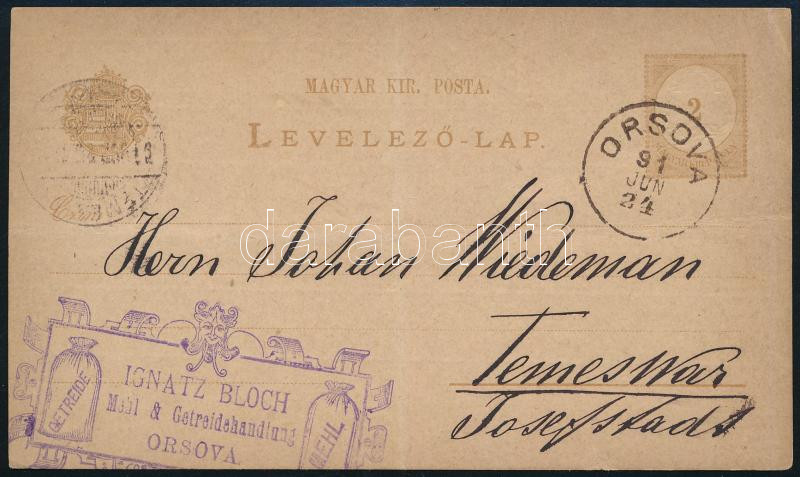 MAGYAR KIR. POSTA.
LEVELEZŐ-LAP.
2
ORSOVA
91
JUN
24
Hern Johan Wiedeman
Temeswar
Josefstadt
darabanth.com
GETREIDE
IGNATZ BLOCH
Mehl & Getreidehandlung
ORSOVA.
MEHL